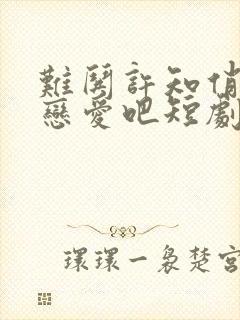 難鬨許知俏
戀愛吧短劇
環環一裊楚宮